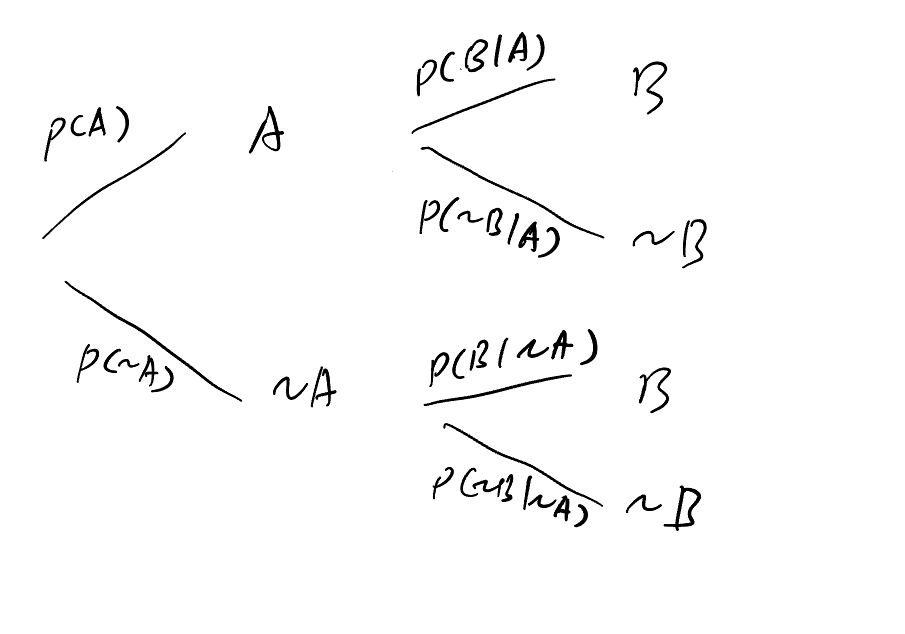 P(B|A)
B
P(A)
A
P(~B|A)
~B
P(~A)
~A
P(B|~A)
B
P(~B|~A)
~B